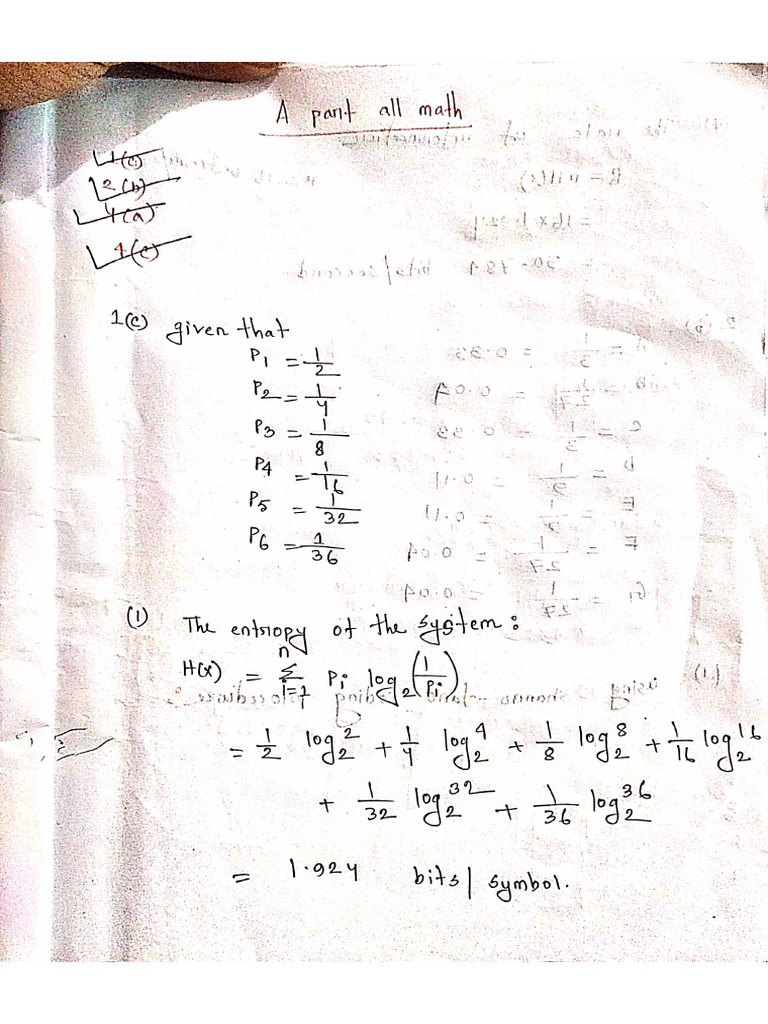 A part all math
1(c)
2(b)
4(a)
4(c)
1(c) given that
P1 = 1/2
P2 = 1/4
P3 = 1/8
P4 = 1/16
P5 = 1/32
P6 = 1/36
(1) The entropy of the system:
H(x) = n Σ i=1 Pi log2 (1/Pi)
= 1/2 log2 2 + 1/4 log2 4 + 1/8 log2 8 + 1/16 log2 16
+ 1/32 log2 32 + 1/36 log2 36
= 1.924 bits/symbol.